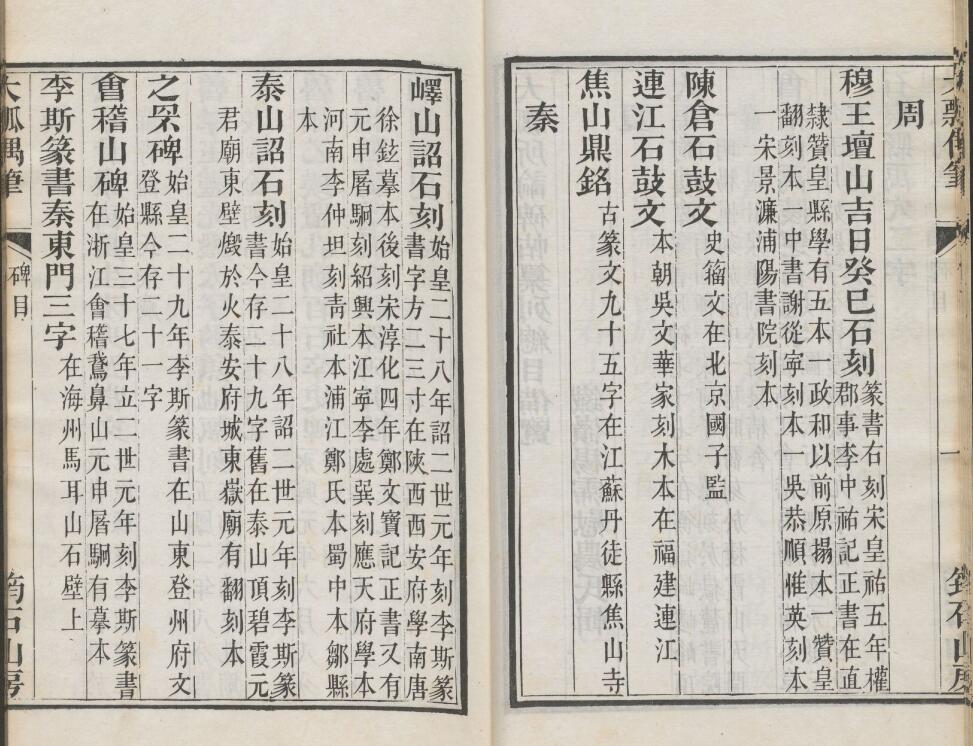 周
穆王壇山吉日癸巳石刻
篆書右刻宋皇祐五年權
郡事李中祐記正書在直
隸贊皇縣學有五本一政和以前原搨本一贊皇
翻刻本一中書謝從寧刻本一吳恭順惟英刻本
一宋景濂浦陽書院刻本
陳倉石鼓文
史籀文在北京國子監
連江石鼓文
本朝吳文華家刻木本在福建連江
焦山鼎銘
古篆文九十五字在江蘇丹徒縣焦山寺
秦
嶧山詔石刻
始皇二十八年詔二世元年刻李斯篆
書字方二三寸在陝西西安府學南唐
徐鉉摹本後刻宋淳化四年鄭文寶記正書又有
元申屠駉刻紹興本江寧李處巽刻應天府學本
河南李仲坦刻靑社本浦江鄭氏本蜀中本鄒縣
本
泰山詔石刻
始皇二十八年詔二世元年刻李斯篆
書今存二十九字舊在泰山頂碧霞元
君廟東壁燬於火泰安府城東嶽廟有翻刻本
之罘碑
始皇二十九年李斯篆書在山東登州府文
登縣今存二十一字
會稽山碑
始皇三十七年立二世元年刻李斯篆書
在浙江會稽鵞鼻山元申屠駉有摹本
李斯篆書秦東門三字
在海州馬耳山石壁上
碑目